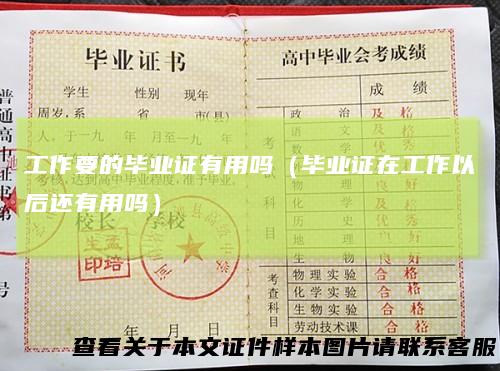 毕业证书
学生 性别 现年
周岁,系 省 市(县)
人,于一九 年 月至一九 年
工作要的毕业证有用吗（毕业证在工作以
后还有用吗）
考核,达到高中毕业程度,准予毕业。
校长 学校
孟
生培
印
年 月 日
高中毕业会考成绩
成 绩
考试科目
政 治 及 格
语 文 及 格
数 学 优 秀
物 理
化 学
历 史
地 理 良 好
生 物 良 好
考查科目
物理实验 合 格
化学实验 合 格
生物实验 合 格
劳动技术课 合 格
普通高中
证书第
号
查看关于本文证件样本图片请联系客服